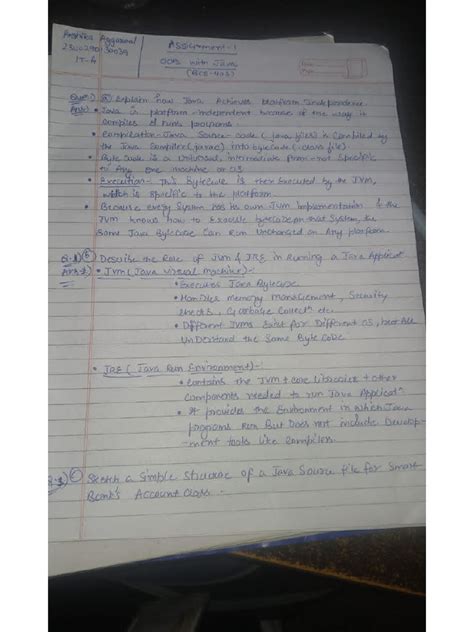 Aggarwal
IT-A
Assignment-1
OOPS with Java
(BCS-403)
Que-1) a) Explain how Java Achieves Platform Independence
Ans: • Java is platform-independent because of the ways it
compiles & runs programs.
• Compilation- Java Source-code (.java files) is compiled by
the Java Compiler (javac) into bytecode (.class file)
• Byte code is a universal, intermediate form-not specific
to Any one machine or OS
• Execution- This Bytecode is then executed by the JVM,
which is specific to the platform
• Because every System has its own JVM implementation & the
JVM knows how to Execute bytecode on that System, the
Same Java Bytecode Can Run Unchanged on Any platform.
b) Describe the Role of JVM & JRE in Running a Java Applicat
Ans-2) • JVM (Java Virtual Machine):-
• Executes Java Bytecode.
• Handles Memory Management, Security
checks, Garbage Collectn etc.
• Different JVMs exist for Different OS, but All
understand the Same Byte Code
• JRE (Java Run Environment):-
• Contains the JVM + core libraries + other
components needed to run Java Applicatn
• It provides the Environment in which Java
programs Run But Does not include Develop-
-ment tools like Compilers.
c) Sketch a Simple Structure of a Java Source file for Smart
Bank's Account Class.